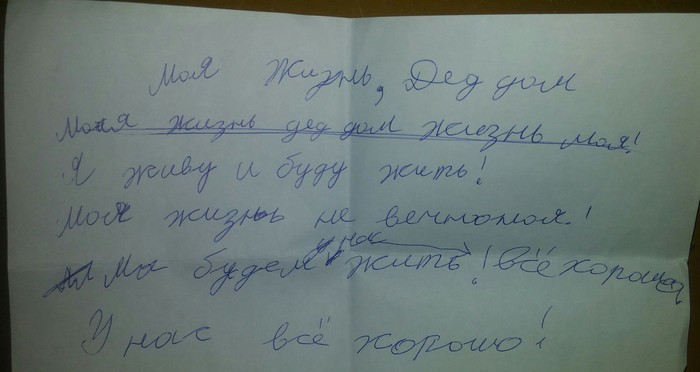 Моя жизнь, Дед дом
Моя жизнь дед дом жизнь моя!
Я живу и буду жить!
Моя жизнь не
Мы будем жить! у нас всё хорошо
У нас всё хорошо!